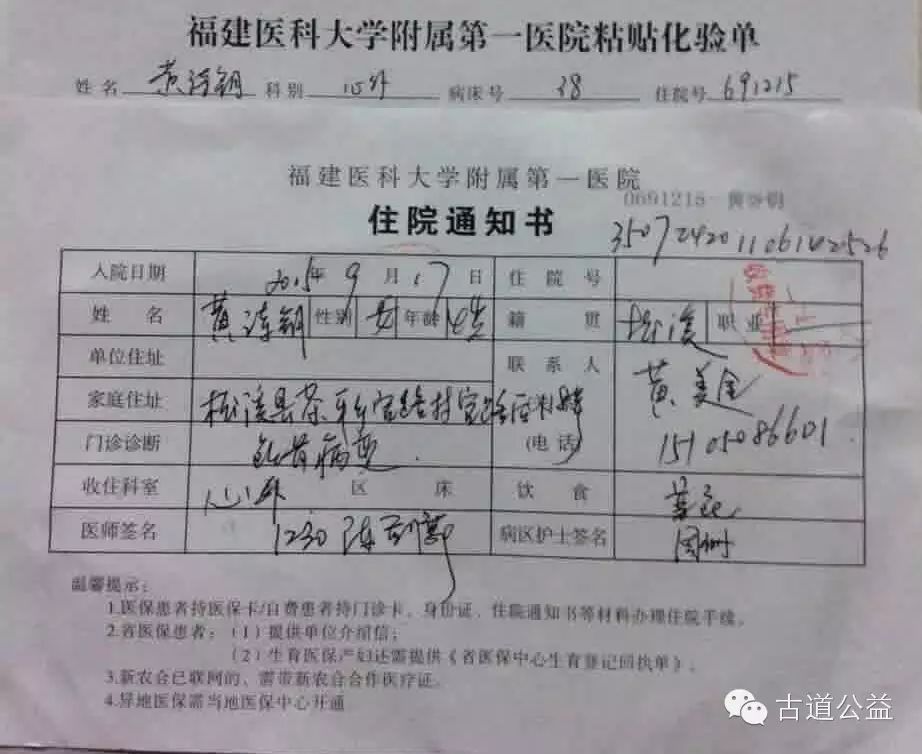 福建医科大学附属第一医院粘贴化验单
姓名 黄 钥 科别 心外 病床号 38 住院号 691215
福建医科大学附属第一医院
0691215
住院通知书
入院日期 2015年 9 月 17 日 住院号
姓名 黄 性别 女 年龄 4岁 籍贯 松溪 职业
单位住址 联系人 黄美金
家庭住址 松溪县茶平乡 村
门诊诊断 病变 (电话) 15105086601
收住科室 心外 区 床 饮食 普
医师签名 1230 陈 病区护士签名 周
温馨提示:
1.医保患者持医保卡/自费患者持门诊卡、身份证、住院通知书等材料办理住院手续。
2.省医保患者:(1)提供单位介绍信;
(2)生育医保产妇还需提供《省医保中心生育登记回执单》。
3.新农合已联网的、需带新农合合作医疗证。
4.异地医保需当地医保中心开通
古道公益